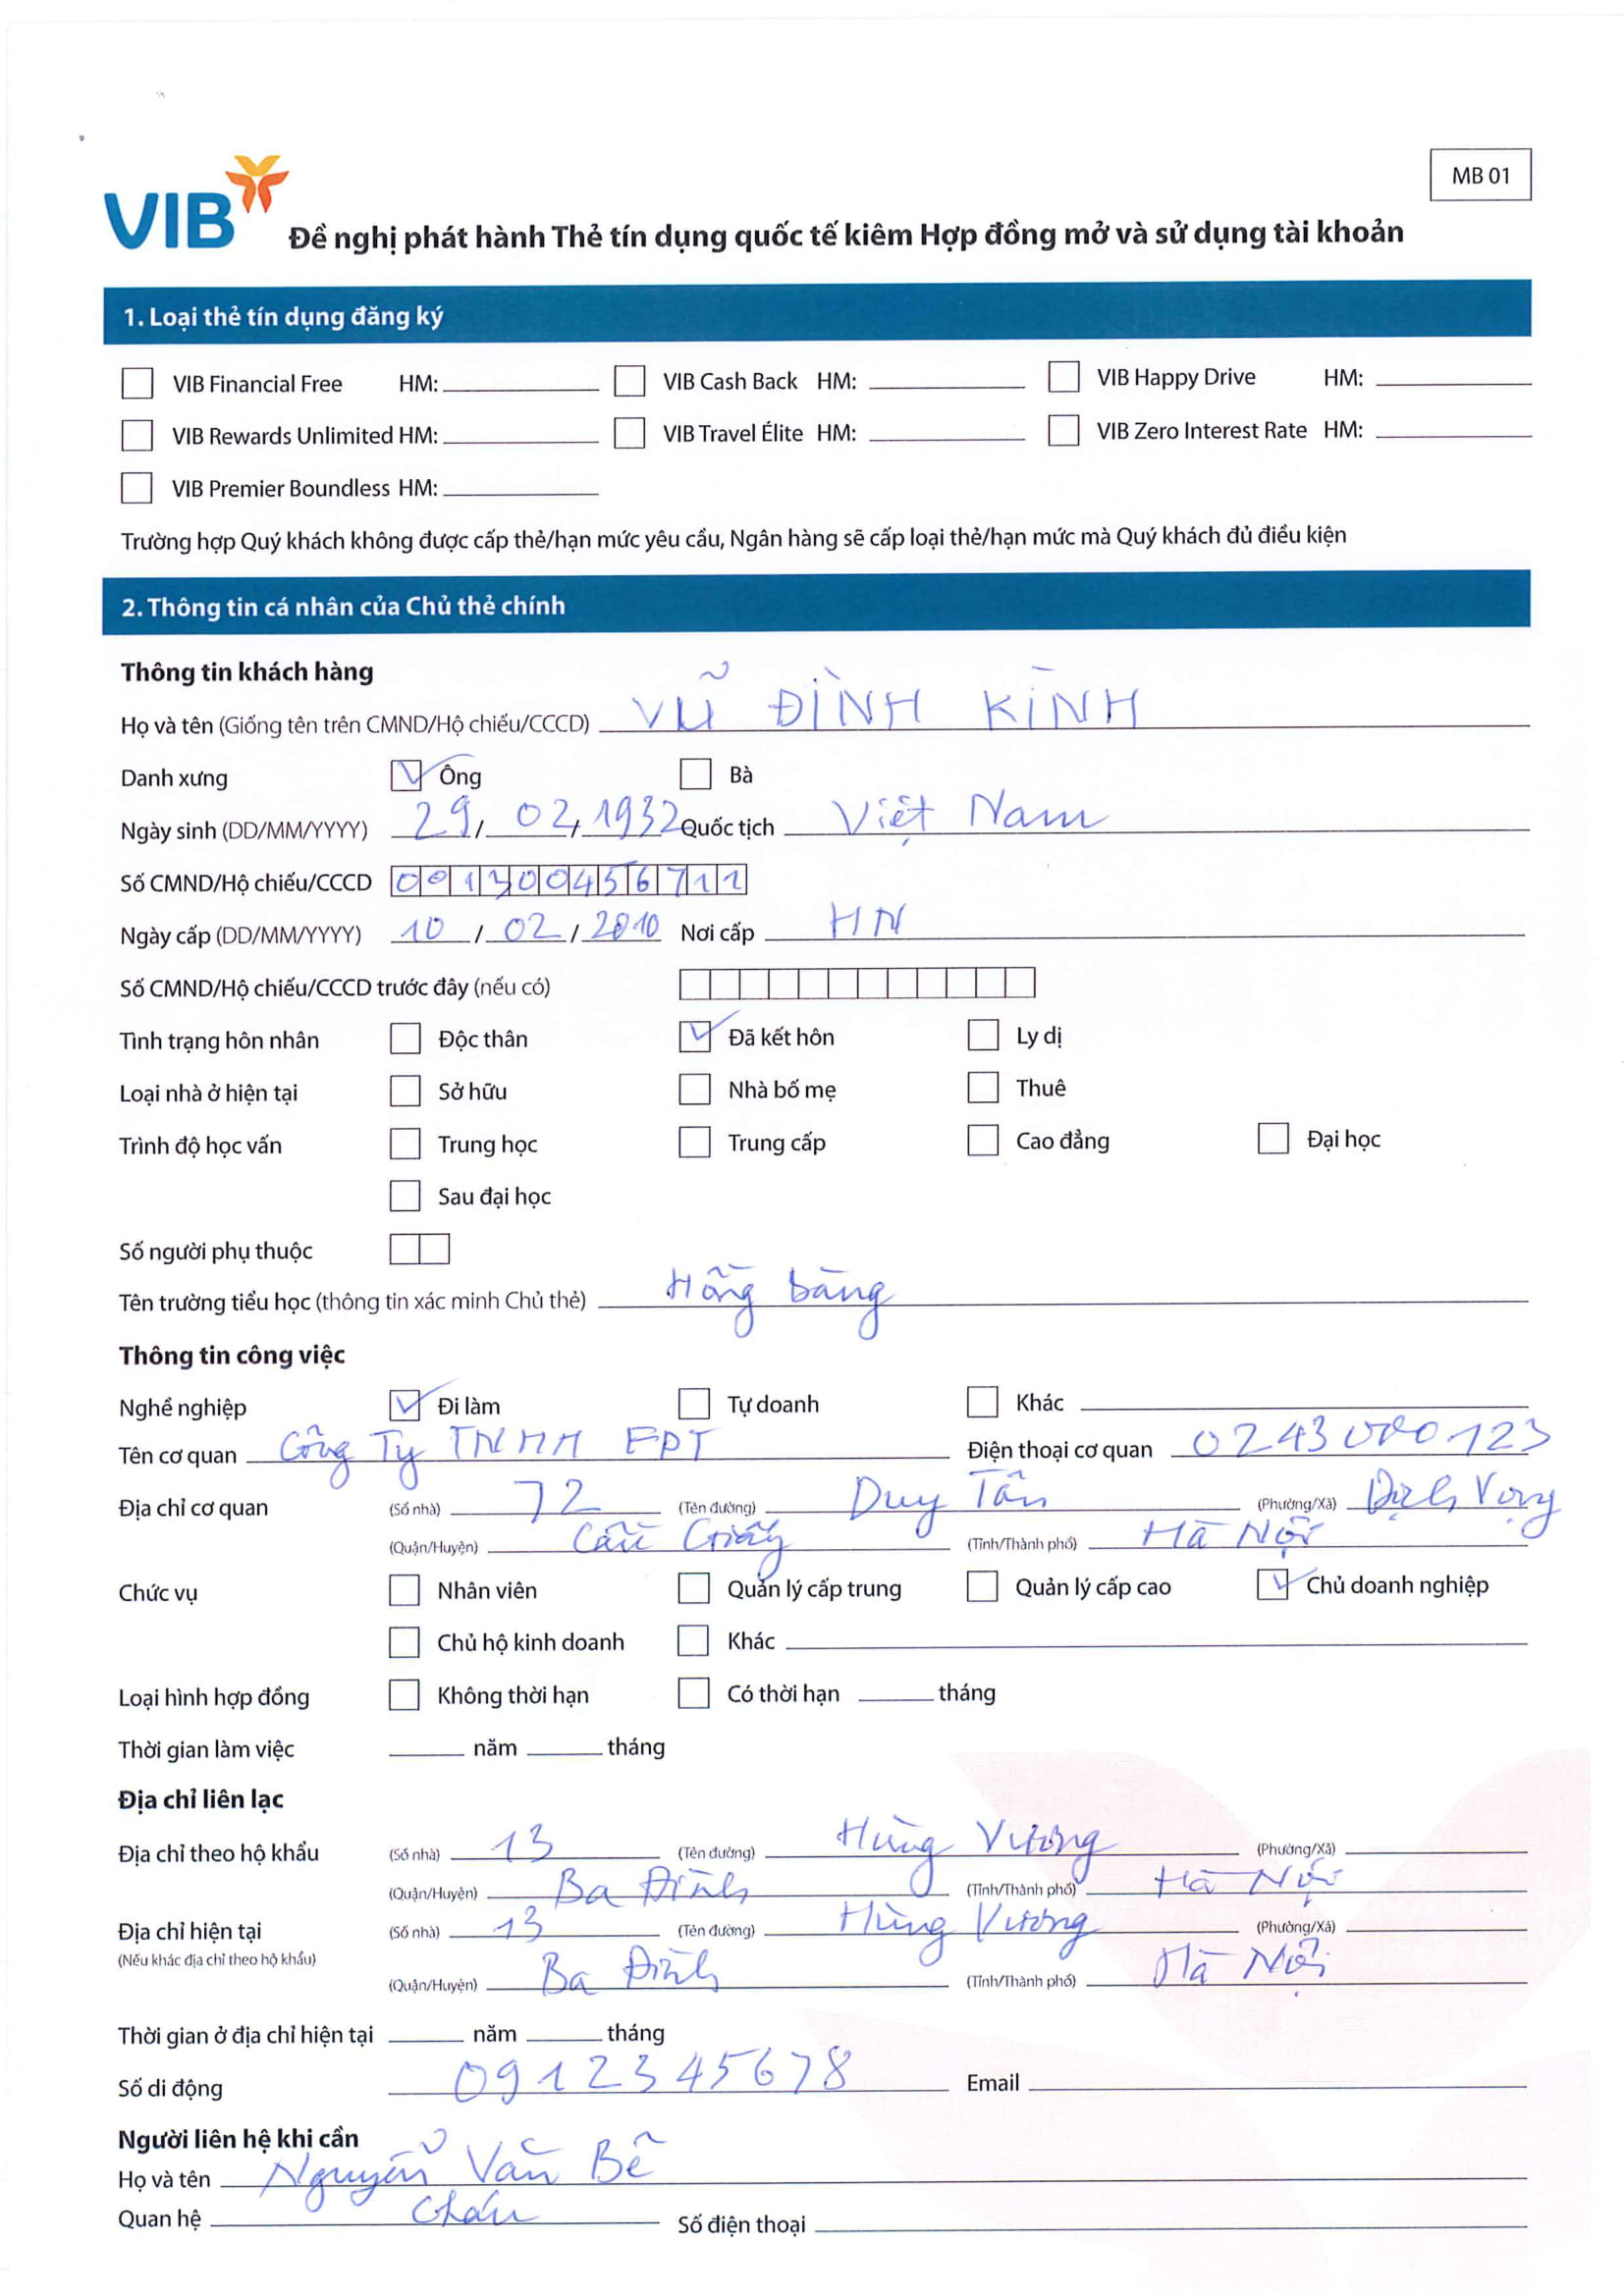 MB 01
VIB
Đề nghị phát hành Thẻ tín dụng quốc tế kiêm Hợp đồng mở và sử dụng tài khoản
1. Loại thẻ tín dụng đăng ký
VIB Financial Free HM: VIB Cash Back HM: VIB Happy Drive HM:
VIB Rewards Unlimited HM: VIB Travel Élite HM: VIB Zero Interest Rate HM:
VIB Premier Boundless HM:
Trường hợp Quý khách không được cấp thẻ/hạn mức yêu cầu, Ngân hàng sẽ cấp loại thẻ/hạn mức mà Quý khách đủ điều kiện
2. Thông tin cá nhân của Chủ thẻ chính
Thông tin khách hàng
Họ và tên (Giống tên trên CMND/Hộ chiếu/CCCD) VŨ ĐÌNH KÌNH
Danh xưng Ông Bà
Ngày sinh (DD/MM/YYYY) 29 / 02 / 1932 Quốc tịch Việt Nam
Số CMND/Hộ chiếu/CCCD 001300456711
Ngày cấp (DD/MM/YYYY) 10 / 02 / 2010 Nơi cấp HN
Số CMND/Hộ chiếu/CCCD trước đây (nếu có)
Tình trạng hôn nhân Độc thân Đã kết hôn Ly dị
Loại nhà ở hiện tại Sở hữu Nhà bố mẹ Thuê
Trình độ học vấn Trung học Trung cấp Cao đẳng Đại học
Sau đại học
Số người phụ thuộc
Tên trường tiểu học (thông tin xác minh Chủ thẻ) Hồng bàng
Thông tin công việc
Nghề nghiệp Đi làm Tự doanh Khác
Tên cơ quan Công Ty TNHH FPT Điện thoại cơ quan 0243000123
Địa chỉ cơ quan (Số nhà) 72 (Tên đường) Duy Tân (Phường/Xã) Dịch Vọng
(Quận/Huyện) Cầu Giấy (Tỉnh/Thành phố) Hà Nội
Chức vụ Nhân viên Quản lý cấp trung Quản lý cấp cao Chủ doanh nghiệp
Chủ hộ kinh doanh Khác
Loại hình hợp đồng Không thời hạn Có thời hạn tháng
Thời gian làm việc năm tháng
Địa chỉ liên lạc
Địa chỉ theo hộ khẩu (Số nhà) 13 (Tên đường) Hùng Vương (Phường/Xã)
(Quận/Huyện) Ba Đình (Tỉnh/Thành phố) Hà Nội
Địa chỉ hiện tại (Số nhà) 13 (Tên đường) Hùng Vương (Phường/Xã)
(Nếu khác địa chỉ theo hộ khẩu)
(Quận/Huyện) Ba Đình (Tỉnh/Thành phố) Hà Nội
Thời gian ở địa chỉ hiện tại năm tháng
Số di động 0912345678 Email
Người liên hệ khi cần
Họ và tên Nguyễn Văn Bê
Quan hệ Cháu Số điện thoại